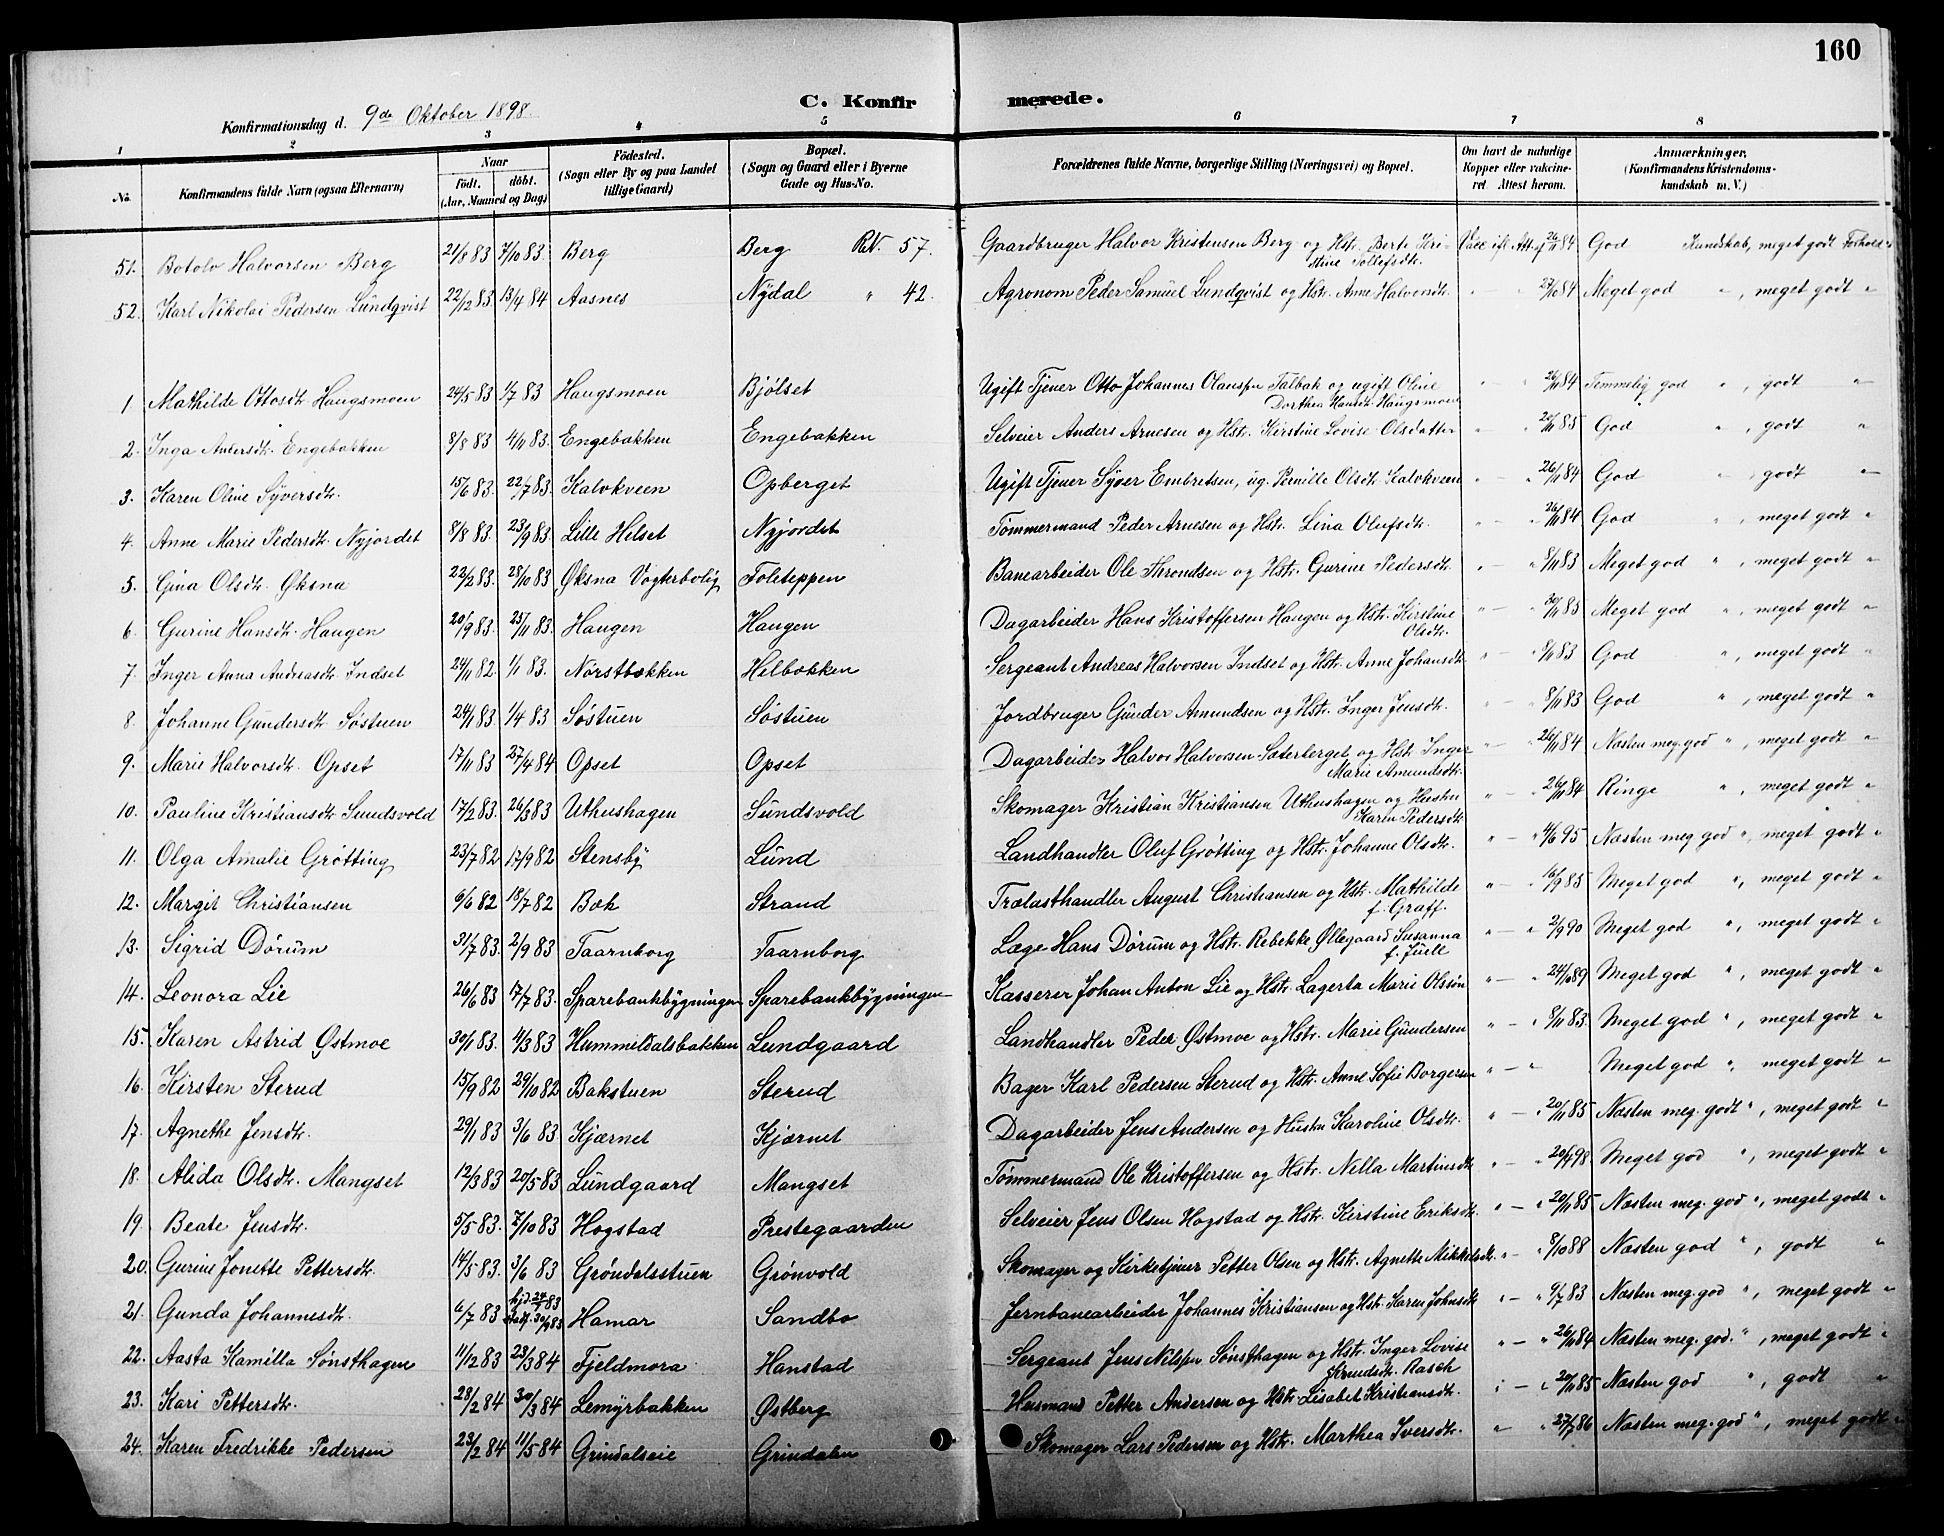 160
C. Konfirmerede.
Konfirmationsdag d. 9de Oktober 1898.
1 2 3 4 5 6 7 8
No. Konfirmandens fulde Navn (ogsaa Efternavn) Naar født. døbt. (Aar, Maaned og Dag) Fødested. (Sogn eller By og paa Landet tillige Gaard) Bopæl. (Sogn og Gaard eller i Byerne Gade og Hus-No. Forældrenes fulde Navne, borgerlige Stilling (Næringsvei) og Bopæl. Om havt de naturlige Kopper eller vakcineret Attest herom. Anmærkninger. (Konfirmandens Kristendomskundskab m. V.)
51. Botolv Halvorsen Berg 21/8 83 7/10 83. Berg Berg 57. Gaardbruger Halvor Kristensen Berg og Hstr. Berte Kristine Tollefsdtr. Vacc ifl. Att. af 26/11 84 God Kundskab, meget godt Forhold
52. Karl Nikolai Pedersen Lundqvist 22/12 83 13/4 84 Aasnes Nydal " 42. Agronom Peder Samuel Lundqvist og Hstr. Anne Halvorsdtr. " " 27/10 84 Meget god ", meget godt "
1 Mathilde Ottosdtr. Haugsmoen 24/5 83 1/7 83 Haugsmoen Bjølset Ugift Tjener Otto Johannes Olaussen Talbak og ugift Oline Dorthea Hansdtr. Haugsmoen " " 26/11 84 Temmelig god ", godt "
2. Inga Andersdtr. Engebakken 8/8 83 4/11 83. Engebakken Engebakken Selveier Anders Arnesen og Hstr. Kirstine Lovise Olsdatter " " 20/11 85 God ", godt "
3. Karen Oline Syversdtr. 15/6 83. 22/7 83. Kalvkveen Opberget Ugift Tjener Syver Embretsen, ug. Pernille Olsdtr. Kalvkveen " " 26/11 84 God " godt "
4. Anne Marie Pedersdtr. Nyjordet 8/8 83. 23/9 83. Lille Hilset Nyjordet Tømmermand Peder Arnesen og Hstr. Lina Olufsdtr. " " 26/11 84 God ", meget godt "
5. Gina Olsdtr. Øksna 22/2 83. 28/10 83 Øksna Vogterbolig Foleteppen Banearbeider Ole Throndsen og Hstr. Gurine Pedersdtr. " " 8/11 83 Meget god ", meget godt "
6. Gurine Hansdtr. Haugen 20/9 83. 25/11 83. Haugen Haugen Dagarbeider Hans Kristoffersen Haugen og Hstr. Kirstine Olsdtr. " " 30/11 85 Meget god ", meget godt "
7. Inger Anna Andreasdtr. Indset 24/11 82. 1/1 83. Nørstbækken Helbækken Sergeant Andreas Halvorsen Indset og Hstr. Anne Johansdtr. " " 8/11 83 God ", meget godt "
8. Johanne Gundersdtr. Søstuen 24/1 83. 1/4 83 Søstuen Søstuen Jordbruger Gunder Amundsen og Hstr. Inger Jensdtr. " " 8/11 83 God ", meget godt "
9. Marie Halvorsdtr. Opset 17/11 83 27/4 84 Opset Opset Dagarbeider Halvor Halvorsen Saterberget og Hstr. Inger Marie Amundsdtr. " " 26/11 84 Næsten meg. god ", meget godt "
10. Pauline Kristiansdtr. Sundsvold 17/2 83. 26/3 83 Uthushagen Sundsvold Skomager Kristian Kristiansen Uthushagen og Hustru Karen Pedersdtr. " " 26/11 84 Ringe ", meget godt "
11. Olga Amalie Grøtting 23/7 82 17/9 82 Stensby Lund Landhandler Oluf Grøtting og Hstr. Johanne Olsdtr. " " 4/6 95 Næsten meg god ", meget godt "
12. Margit Christiansen 9/6 82 18/7 82 Bæk Strand Trælasthandler August Christiansen og Hstr. Mathilde f. Graff. " " 16/9 85 Meget god ", meget godt "
13. Sigrid Dørum 31/7 83. 2/9 83 Taarnborg Taarnborg Læge Hans Dørum og Hstr. Rebekke Øllegaard Susanna f. Juell " " 2/9 90 Meget god ", meget godt "
14. Leonora Lie 26/6 83 17/7 83. Sparebankbygningen Sparebankbygningen Kasserer Johan Anton Lie og Hstr. Lagerta Marie Olssøn " " 24/10 89 Meget god ", meget godt "
15. Karen Astrid Østmoe 30/1 83. 11/3 83 Hummeldalsbakken Lundgaard Landhandler Peder Østmoe og Hstr. Marie Gundersen " " 8/11 83. Meget god ", meget godt "
16. Kirsten Sterud 15/9 82 29/10 82 Bakstuen Sterud Bager Karl Pedersen Sterud og Hstr. Anne Sofie Borgersen " " Meget god ", meget godt "
17. Agnethe Jensdtr. 29/1 83 3/6 83 Kjærnet Kjærnet Dagarbeider Jens Andersen og Hustru Karoline Olsdtr. " " 20/11 85 Næsten meg. godt ", meget godt "
18. Alida Olsdtr. Mangset 12/3 83 20/5 83 Lundgaard Mangset Tømmermand Ole Kristoffersen og Hstr. Nella Martinsdtr. " " Meget god ", meget godt "
19. Beate Jensdtr. 5/5 83. 7/10 83 Hogstad Prestegaarden Selveier Jens Olsen Hogstad og Hstr. Kirstine Eriksdtr. " " 20/11 85 Næsten meg. god ", meget godt "
20. Gurine Jonette Pettersdtr. 14/5 83. 3/6 83 Grøndalsstuen Grønvold Skomager og Kirketjener Petter Olsen og Hstr. Agnette Mikkelsdtr. " " 8/10 88 Næsten god ", godt "
21. Gunda Johannesdtr. 6/7 83 hjd. 24/7 83 Stadf. 30/9 83 Hamar Sandbo Jernbanearbeider Johannes Kristiansen og Hstr. Karen Johnsdtr. " " 9/7 83 Næsten meg. god ", meget godt "
22. Aasta Kamilla Sønsthagen 11/12 83 23/3 84 Fjeldmora Hanstad Sergeant Jens Nilssen Sønsthagen og Hstr. Inger Lovise Knudsdtr. Rasch " " 26/11 84 Næsten meg. god. ", meget godt "
23. Kari Pettersdtr. 28/2 84 30/3 84 Lemyrbakken Østberg Husmand Petter Andersen og Hstr. Lisabet Kristiansdtr. " " 20/11 85 Næsten god ", godt "
24. Karen Fredrikke Pedersen 23/2 84 11/5 84 Grindalseie Grindalen Skomager Lars Pedersen og Hstr. Marthea Iversdtr. " " 27/7 86 Næsten meg. god ", meget godt "